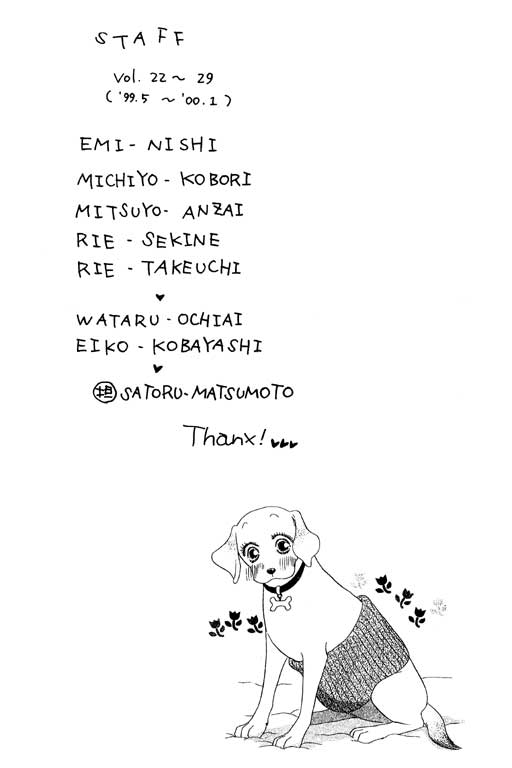 STAFF
vol. 22～29
('99.5 ～'00.1)
EMI - NISHI
MICHIYO - KOBORI
MITSUYO - ANZAI
RIE - SEKINE
RIE - TAKEUCHI
♥
WATARU - OCHIAI
EIKO - KOBAYASHI
♥
担 SATORU - MATSUMOTO
Thanx! ♥♥♥